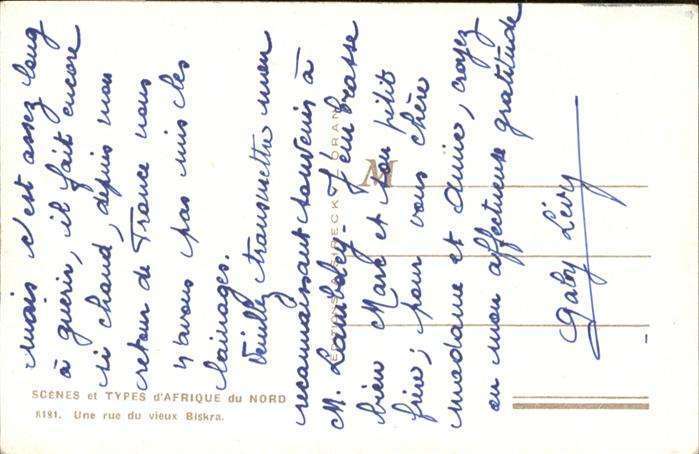 mais c'est assez long
à guérir, il fait encore
si chaud, depuis mon
retour de France nous
n'avons pas mis les
lainages.
Veuillez transmettre mon
reconnaissant souvenir à
M. J'embrasse
bien Marc et son petit
frère; pour vous chère
madame et amie, croyez
en mon affectueuse gratitude
Gaby Lévy
ORAN
M
SCÈNES et TYPES d'AFRIQUE du NORD
8181. Une rue du vieux Biskra.